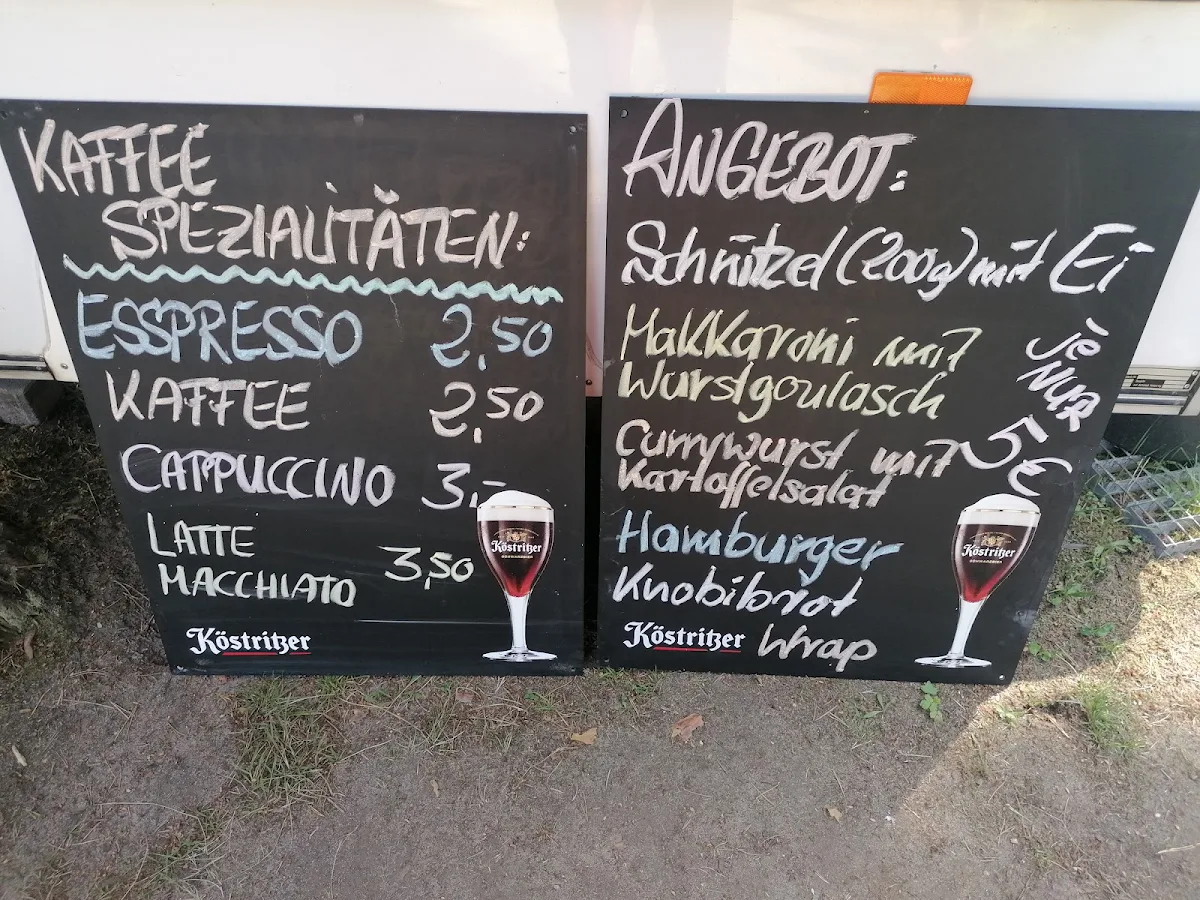 KAFFEE
SPEZIALITÄTEN:
ESSPRESSO 2,50
KAFFEE 2,50
CAPPUCCINO 3,-
LATTE
MACCHIATO 3,50
Köstritzer
Köstritzer
ANGEBOT:
Schnitzel (200g) mit Ei
Makkaroni mit
Wurstgoulasch
Currywurst mit
Kartoffelsalat
je NUR
5€
Hamburger
Knobibrot
Wrap
Köstritzer
Köstritzer